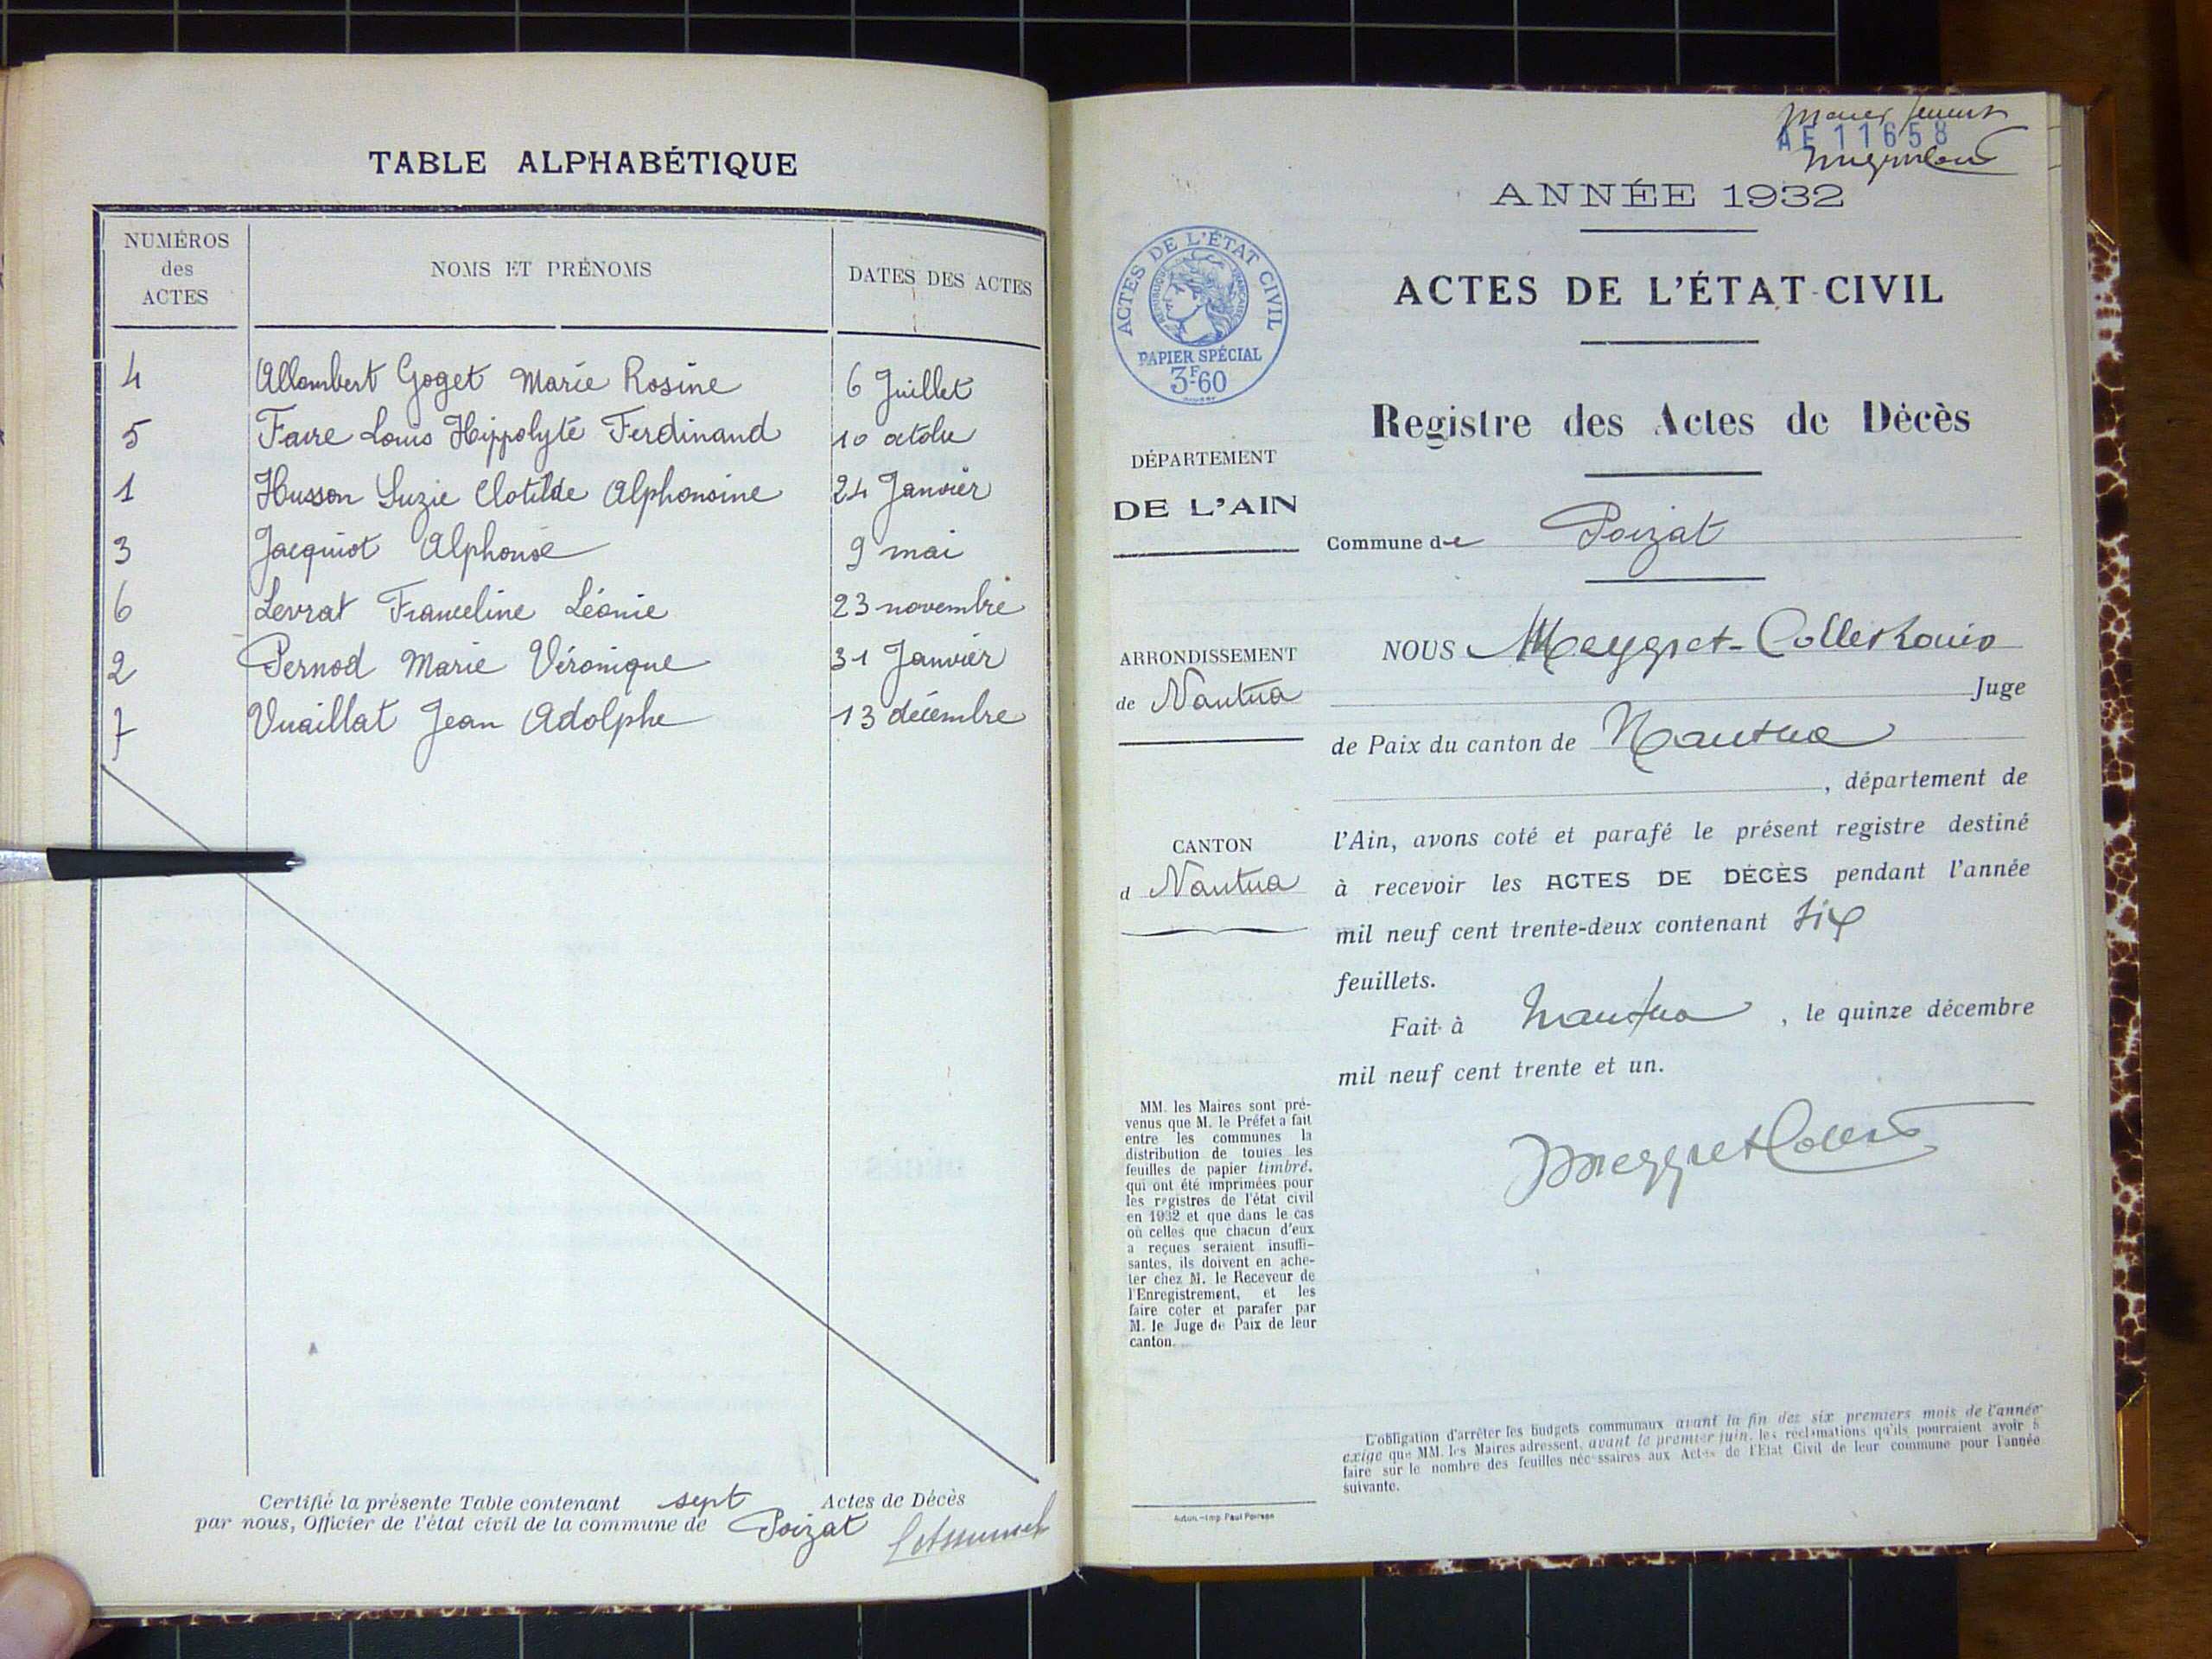 TABLE ALPHABÉTIQUE
NUMÉROS
des
ACTES
NOMS ET PRÉNOMS
DATES DES ACTES
4 Allombert Goget Marie Rosine 6 Juillet
5 Favre Louis Hippolyte Ferdinand 10 octobre
1 Husson Suzie Clotilde Alphonsine 24 Janvier
3 Jacquiot Alphonse 9 mai
6 Levrat Franceline Léonie 23 novembre
2 Pernod Marie Véronique 31 Janvier
7 Vuaillat Jean Adolphe 13 décembre
Certifié la présente Table contenant sept Actes de Décès
par nous, Officier de l'état civil de la commune de Poizat
AE 11658
ANNÉE 1932
ACTES DE L'ÉTAT CIVIL
RÉPUBLIQUE FRANÇAISE
PAPIER SPÉCIAL
3F60
DÉPARTEMENT
DE L'AIN
ARRONDISSEMENT
de Nantua
CANTON
d Nantua
MM. les Maires sont pré-
venus que M. le Préfet a fait
entre les communes la
distribution de toutes les
feuilles de papier timbré,
qui ont été imprimées pour
les registres de l'état civil
en 1932 et que dans le cas
où celles que chacun d'eux
a reçues seraient insuffi-
santes, ils doivent en ache-
ter chez M. le Receveur de
l'Enregistrement, et les
faire coter et parafer par
M. le Juge de Paix de leur
canton.
Autun.-Imp. Paul Poirson
ACTES DE L'ÉTAT-CIVIL
Registre des Actes de Décès
Commune de Poizat
NOUS Meygret-Collet Louis
Juge
de Paix du canton de Nantua
, département de
l'Ain, avons coté et parafé le présent registre destiné
à recevoir les ACTES DE DÉCÈS pendant l'année
mil neuf cent trente-deux contenant six
feuillets.
Fait à Nantua, le quinze décembre
mil neuf cent trente et un.
Meygret Collet
L'obligation d'arrêter les budgets communaux avant la fin des six premiers mois de l'année
exige que MM. les Maires adressent, avant le premier juin, les réclamations qu'ils pourraient avoir à
faire sur le nombre des feuilles nécessaires aux Actes de l'Etat Civil de leur commune pour l'année
suivante.